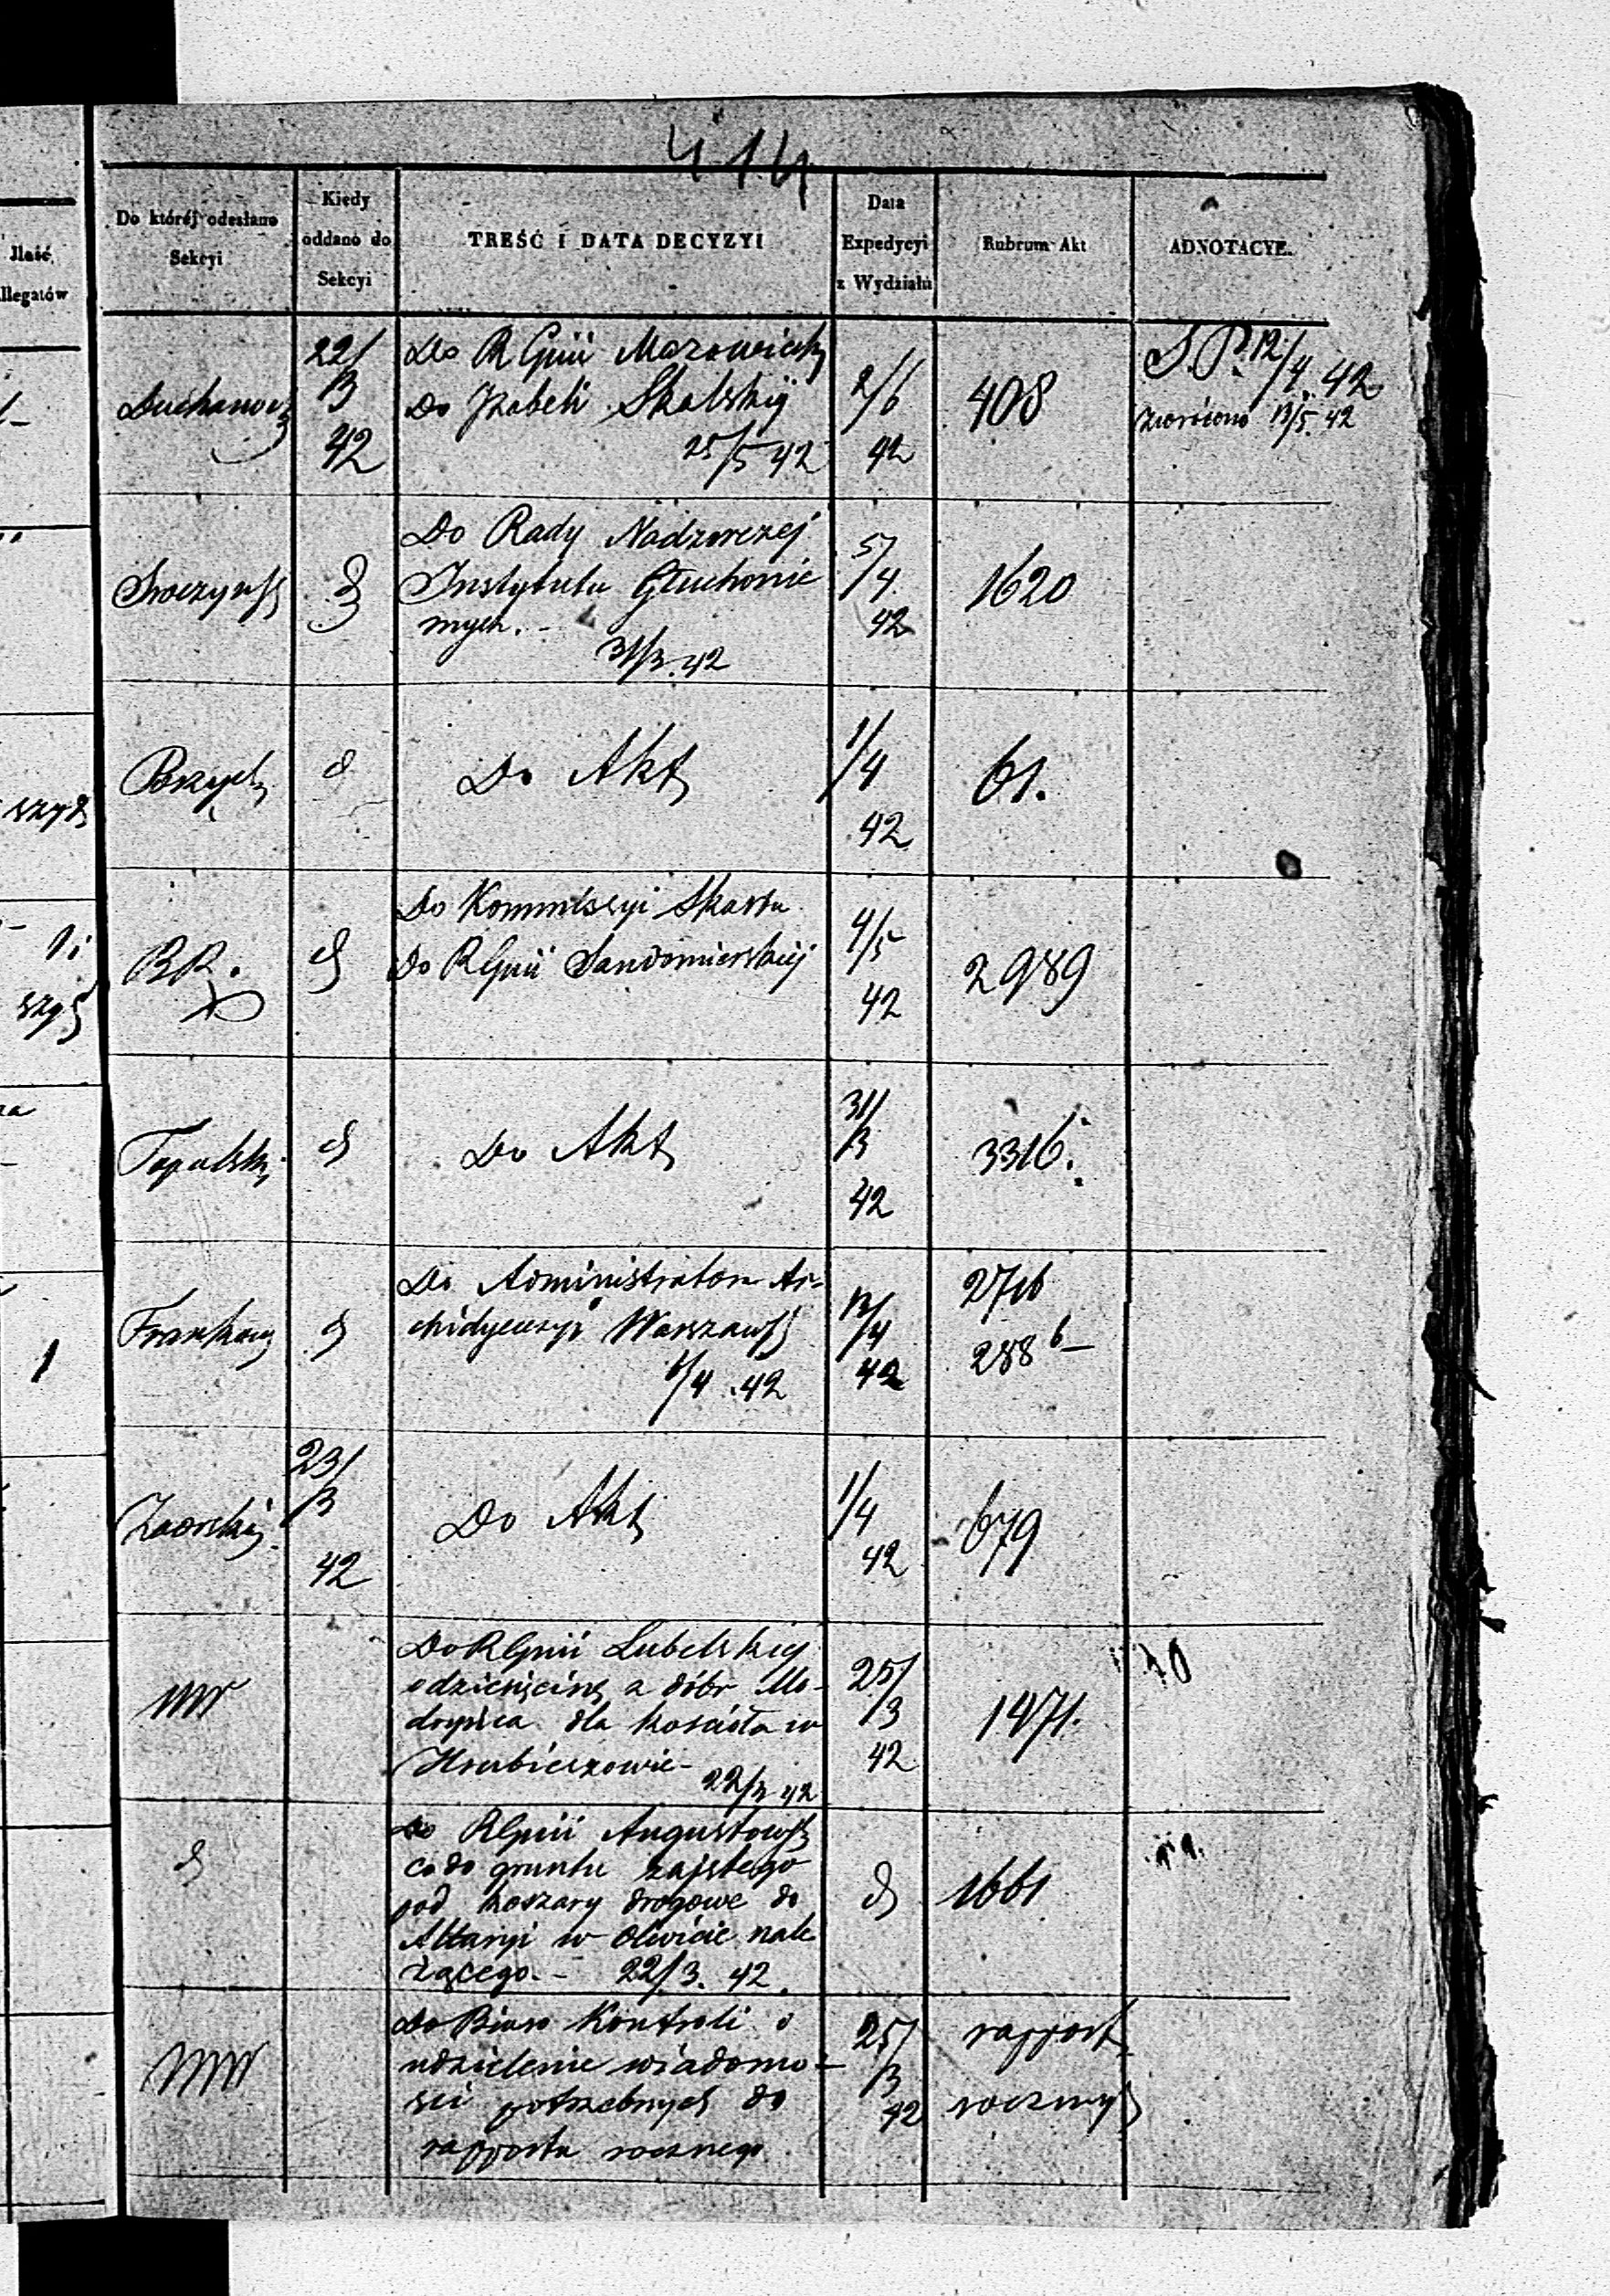 414
Jlość
llegatów
Do któréj odesłano
Sekcyi
Kiedy
oddano do
Sekcyi
TREŚĆ I DATA DECYZYI
Data
Expedycyi
z Wydziału
Rubrum Akt
ADNOTACYE.
22/
3
42
Do R Gnii Mazowieckj
Do Izabeli Skalskiej
25/5 42
2/6
42
408
S.P. 12/4. 42
zwrócono 13/5. 42
Do Rady Nadzorczej
Instytutu Głuchonie
mych. -
31/3. 42
5/
4.
42
1620
Do Akt
1/
4
42
61.
szyd
BR.
Do Kommissyi Skarbu
Do R Gnii Sandomierskiej
4/5
42
2989
Do Akt
31/
3
42
3316.
1
Do Administratora Ar-
chidyecezyi Warszaws
1/4 .42
/4
42
2716
288 b –
23/
3
42
Do Akt
1/4
42
679
Do R Gnii Lubelskiey
o dziesięcinę z dóbr Mo-
drynica dla kościoła w
Hrubieszowie -
22/3 42
25/
3
42
1471.
Do R Gnii Augustows
co do gruntu zajętego
pod koszary drogowe do
Altaryi w Olwicie nale
żącego. - 22/3. 42.
1661
Do Biura Kontroli o
udzielenie wiadomo-
ści potrzebnych do
rapportu rocznego.
25/
3
42
rapport
roczny